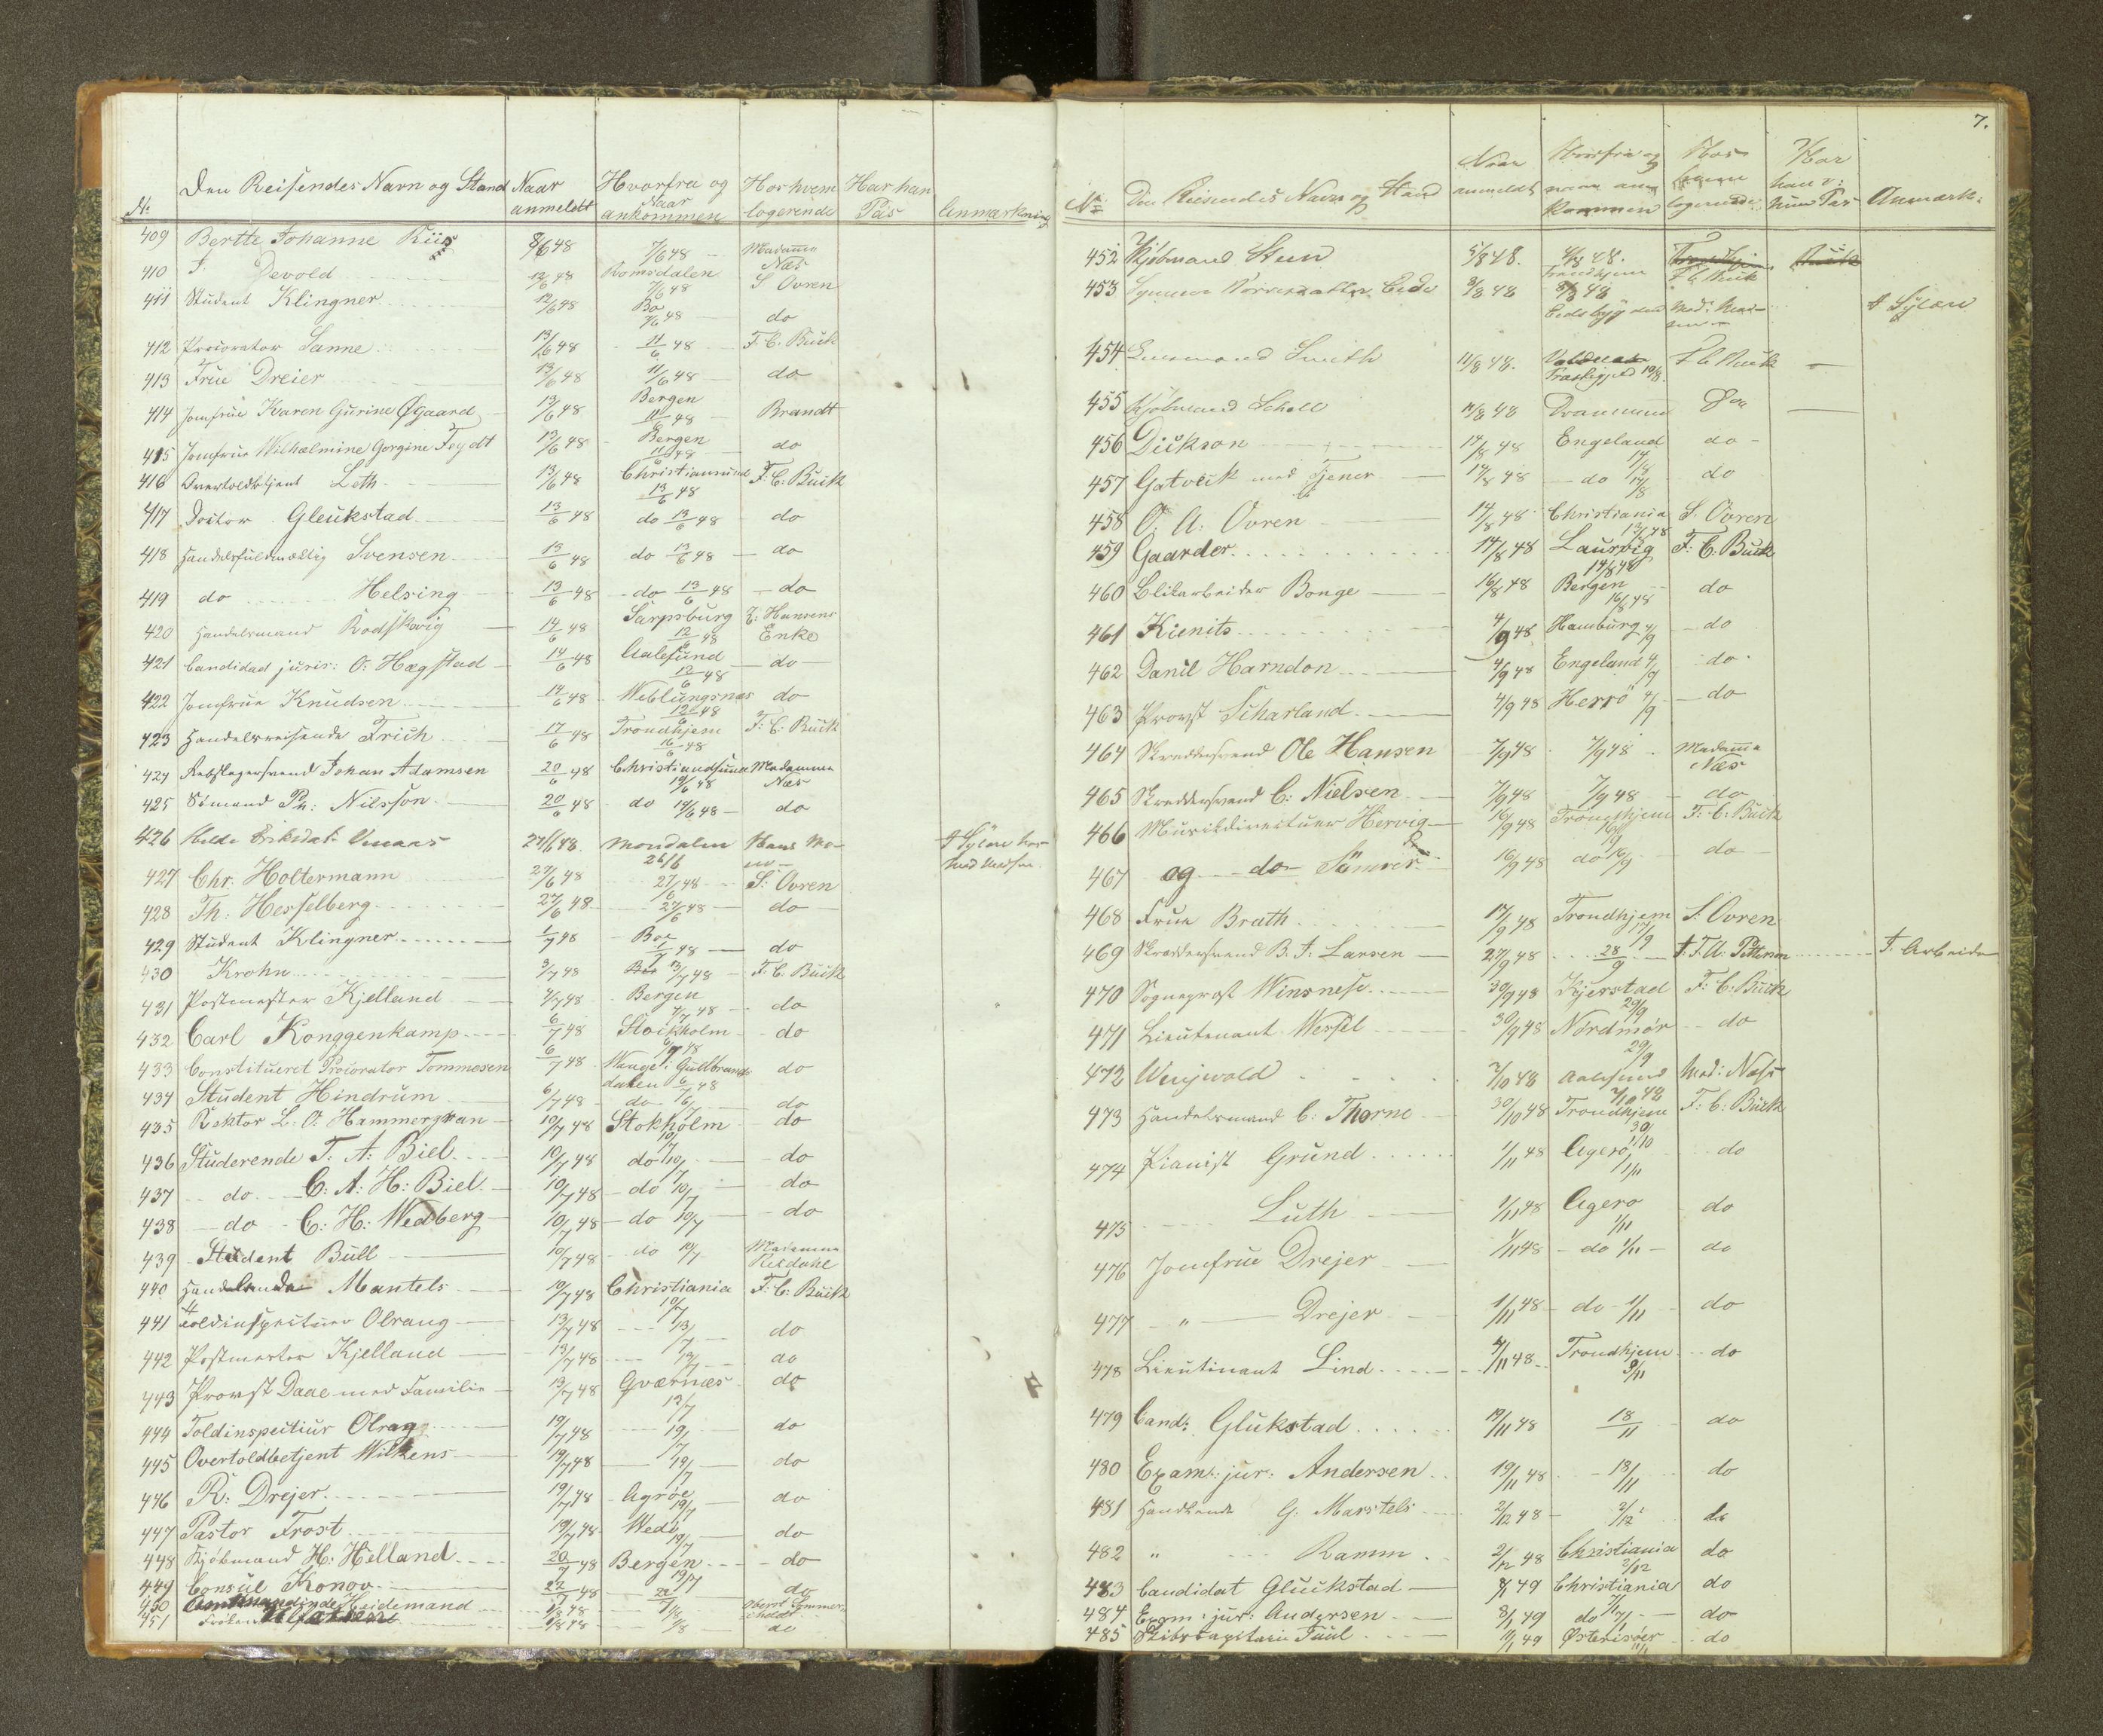 No. Den Reisendes Navn og Stand Naar anmeldt Hvorfra og Naar ankommen Hos hvem logerende Har han Pas Anmærkning
409 Bertte Johanne Riis 8/6 48 7/6 48 Madame Næs
410 F. Devold 12/6 48 Romsdalen 7/6 48 S Ovren
411 Student Klingner 12/6 48 Bo 7/6 48 do
412 Procorator Sanne 13/6 48 11/6 48 F. C. Buck
413 Frue Dreier 13/6 48 11/6 48 do
414 Jomfrue Karen Gurine Øgaard 13/6 48 Bergen 11/6 48 Brandt
415 Jomfrue Wilhelmine Gorgine Feydt 13/6 48 Bergen 11/6 48 do
416 Overtoldbtjent Leth 13/6 48 Christiansund 13/6 48 F: C: Buck
417 Doctor Gleukstad 13/6 48 do 13/6 48 do
418 Handelsfuldmægtig Svensen 13/6 48 do 13/6 48 do
419 do Helsing 13/6 48 do 13/6 48 do
420 Handelsmand Rodskovig 14/6 48 Sarpsburg 12/6 48 Hansens Enke
421 Candidad juris: O: Hægstad 14/6 48 Aalesund 12/6 48 do
422 Jomfrue Knudsen 14/6 48 Weblungsnæs 12/6 48 do
423 Handelsreisende Frich 17/6 48 Trondhjem 16/6 48 F: C: Buck
424 Rebslagersvend Johan Adamsen 20/6 48 Christiansund 19/6 48 Madamme Næs
425 Sömand Nilsson 20/6 48 do 19/6 48 do
426 27/6 48 26/6 Hans
427 Chr: Holtermann 27/6 48 27/6 48 S: Ovren
428 Th: Hesselberg 27/6 48 27/6 48 do
429 Student Klingner 1/7 48 Boe 1/7 48 do
430 Krohn 3/7 48 48 F: C: Buck
431 Postmester Kjelland 4/7 48 Bergen 4/7 48 do
432 Carl Konggenkamp 6/7 48 Stockholm 6/7 48 do
433 Constitueret Procorator Tommesen 6/7 48 Gulbrandsdalen 6/7 48 do
434 Student Hindrum 6/7 48 do 6/7 do
435 Rektor L. O. Hammergran 10/7 48 Stokholm 10/7 do
436 Studerende T. A: Biel 10/7 48 do 10/7 do
437 do C: A: H: Biel 10/7 48 do 10/7 do
438 do C: H: Wedberg 10/7 48 do 10/7 do
439 Student Bull 10/7 48 do 10/7 Madamme
440 Mantels 10/7 48 Christiania 10/7 F: C: Buck
441 Toldinspecteur Olrang 13/7 48 13/7 do
442 Postmester Kjelland 13/7 48 13/7 do
443 Provst Daae med Familie 13/7 48 Gværnæs 12/7 do
444 Toldinspectiur Olrag 19/7 48 19/7 do
445 Overtoldbetjent Wilkens 19/7 48 19/7 do
446 R: Drejer 19/7 48 Agröe 19/7 do
447 Pastor Frost 19/7 48 Wedö 19/7 do
448 Kjöbmand H: Helland 20/7 48 Bergen 19/7 do
449 Consul Konov 22/7 48 do
450 Amtmandinde Heidemand
451 Fröken do
7.
No. Den Reisendes Navn og Stand Naar anmeldt Hvorfra og naar ankommen Hos hvem logerende Har han Pas Anmærk:
452 Kjöbmand Steen 5/8 48. 4/8 48. Trondhjem F C Buck
453 8/8 48 8/8 48 Mad:
454 Smith 11/8 48. 10/8. F C Buck
455 Kjöbmand Schell 14/8 48 Drammen
456 Dickson 14/8 48 Engeland 14/8 do
457 Gatvcik med Tjener 14/8 48 do 14/8 do
458 O. A: Ovren 14/8 48 Christiania 13/8 48 S. Ovren
459 Gaarder 14/8 48 Laurvig 14/8 48 F: C: Buck
460 Blikarbeider Bonge 16/8 48 Bergen 16/8 48 do
461 Kienits 4/9 48 Hamburg 4/9 do
462 Danil Harndon 4/9 48 Engeland 4/9 do
463 Provst Scharland 4/9 48 Herrö 4/9 do
464 Skreddersvend Ole Hansen 7/9 48 7/9 48 Madame Næs
465 Skreddersvend C: Nielsen 7/9 48 7/9 48 do
466 Musikdirecteur Hervig 16/9 48 Trondhjem 16/9 F: C: Buck
467 og do Sömrer 16/9 48 do 16/9 do
468 Frue Brath 17/9 48 Trondhjem 17/9 S. Ovren
469 Skreddersvend B. A: Larsen 27/9 48 28/9 Petterson Arbeide
470 Sogneprest Winsnese 30/9 48 Kjerstad 29/9 F: C: Buck
471 Lieutenant Wessel 30/9 48 Nordmör 29/9 do
472 7/10 48 Aalesund 7/10 48 Mad: Næss
473 Handelsmand C: Thorne 30/10 48 Trondhjem 30/10 F: C: Buck
474 Pianist Grund 1/11 48 Ageröe 1/11 do
475 Luth 1/11 48 Agero 1/11 do
476 Jomfrue Drejer 1/11 48 do 1/11 do
477 " Drejer 1/11 48 do 1/11 do
478 Lieutinant Lind 9/11 48 Trondhjem 9/11 do
479 Cand: Glukstad 19/11 48 18/11 do
480 Exam: jur: Andersen 19/11 48 18/11 do
481 Handlende G. Marstels 2/12 48 2/12 do
482 " Ramm 2/12 48 Christiania 2/12 do
483 Candidat Gluckstad 8/1 49 Christiania 7/1 do
484 Exam: jur: Andersen 8/1 49 do 7/1 do
485 Skibscapitain Juul 11/1 49 Østerisöer 11/1 do